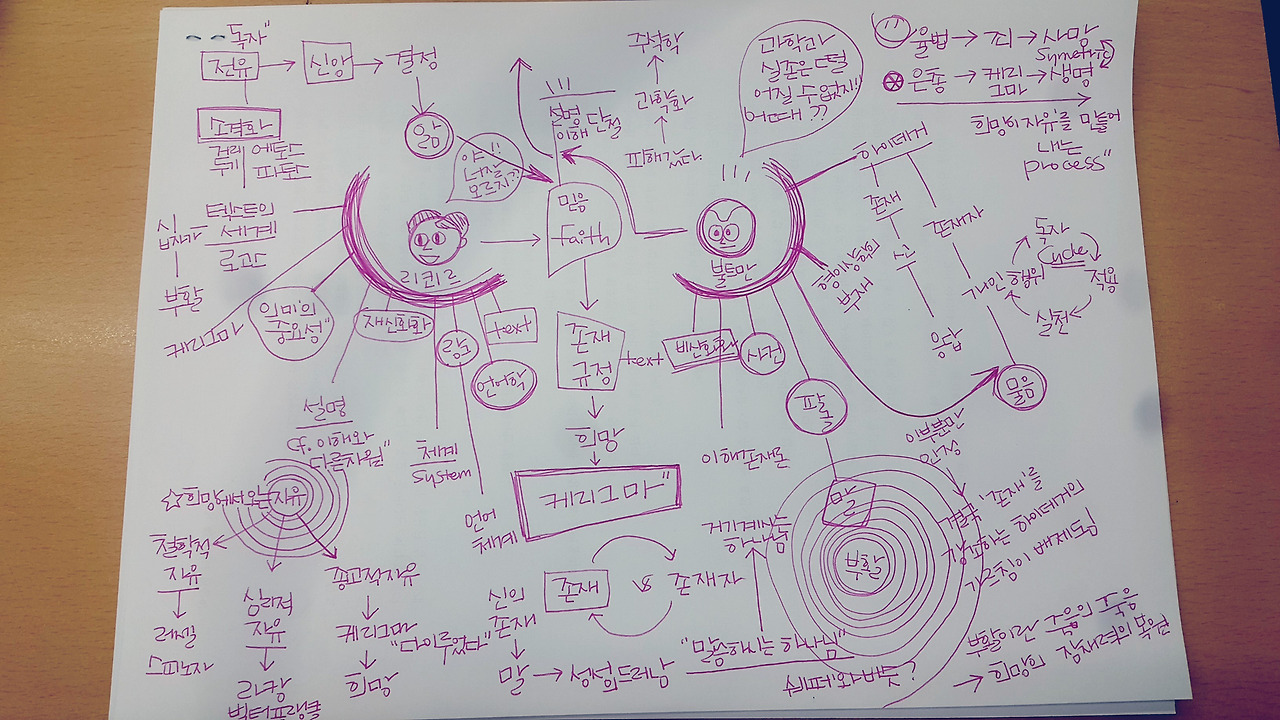 독자"
전유 → 신앙 → 결정
소격화
거리 에토스
두기 파토스
앎
야!!
너 잘
모르지?
설명 단절
이해
주석학
과학화
피해갔다.
과학과
실존은 떨
어질 수 없지!
어때??
율법 → 죄 → 사망
Symetric
은총 → 케리그마 → 생명
희망이 '자유'를 만들어
나는
process"
십자가
부활
텍스트의
세계
로고스
케리그마
"의미의
중요성"
리쾨르
재신화화
랑그
text
언어학
믿음
faith
존재
규정
희망
케리그마"
불트만
text
비신화화
사건
하이데거
존재
신
응답
존재자
형이상학의
부재
독자
Cycle
적용
실천
개인 행위
물음
설명
cf. 이해와
다른차원"
체계
System
언어
체계
이해존재론
파롤
말
부활
이부분만
인정
결국 '존재'를
강조하는 하이데거의
가르침이 배제도임
☆희망에서 오는 자유
철학적
자유
러셀
스피노자
심리적
자유
라캉
빅터프랭클
종교적자유
케리그마
"다이루었다"
희망
존재 vs 존재자
거기계시는
하나님
신의
존재
말 → 성서의드러남
"말씀하시는 하나님"
부활이란 죽음의 죽음
→ 희망의 잠재력의 복원